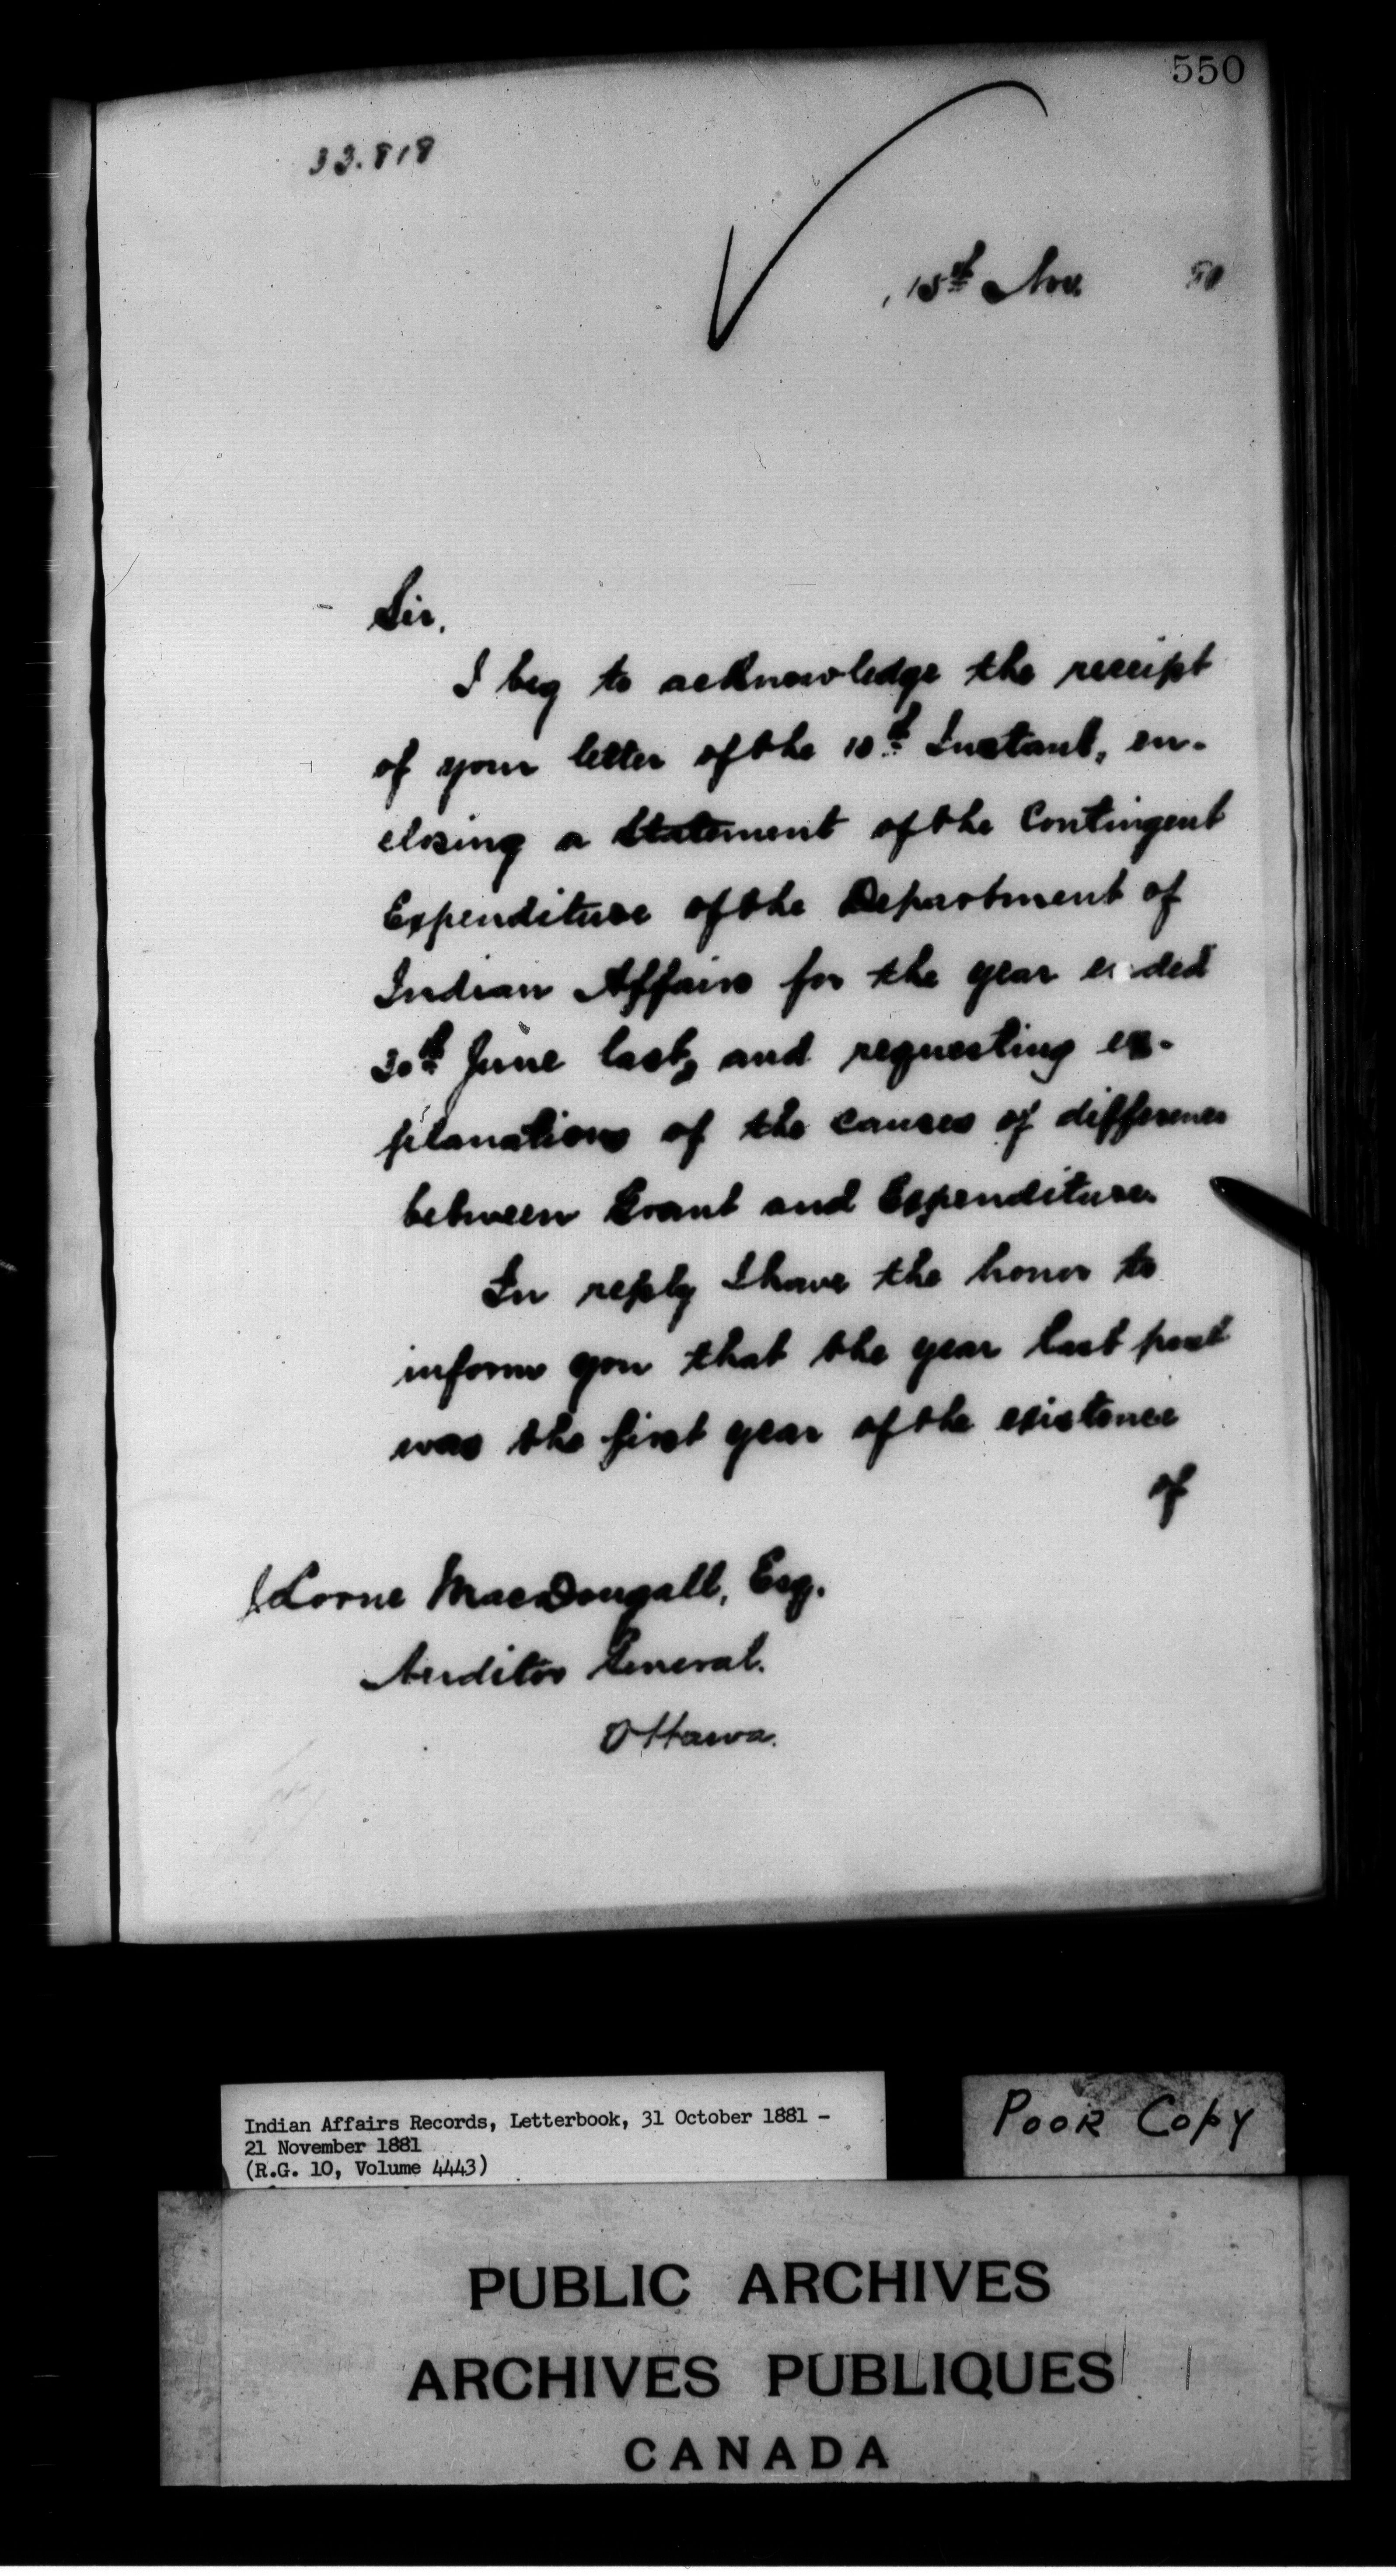 550
33.818
15th Nov.
Sir,
I beg to acknowledge the receipt
of your letter of the 10th Instant, en-
closing a Statement of the Contingent
Expenditure of the Department of
Indian Affairs for the year ended
30th June last, and requesting ex-
planations of the causes of difference
between Grant and Expenditure.
In reply I have the honor to
inform you that the year last past
was the first year of the existence
of
J Lorne MacDougall, Esq.
Auditor General.
Ottawa.
Indian Affairs Records, Letterbook, 31 October 1881 -
21 November 1881
(R.G. 10, Volume 4443)
Poor Copy
PUBLIC ARCHIVES
ARCHIVES PUBLIQUES
CANADA